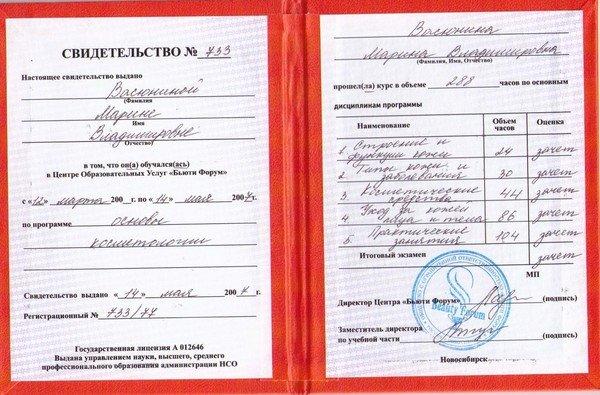 СВИДЕТЕЛЬСТВО № 733
Настоящее свидетельство выдано
Васюниной
(Фамилия)
Марине
Имя
Владимировне
Отчество)
в том, что он(а) обучался(ась)
в Центре Образовательных Услуг «Бьюти Форум»
с «12» марта 200 г. по «14» мая 2007г.
по программе основы
косметологии
Свидетельство выдано «14» мая 2007 г.
Регистрационный № 733/77
Государственная лицензия А 012646
Выдана управлением науки, высшего, среднего
профессионального образования администрации НСО
Васюнина
Марина Владимировна
(Фамилия, Имя, Отчество)
прошел(ла) курс в объеме 288 часов по основным
дисциплинам программы
Наименование Объем часов Оценка
1. Строение и функции кожи 24 зачет
2. Типы кожи и заболевания 30 зачет
3. Косметические средства 44 зачет
4. Уход за кожей лица и тела 86 зачет
5. Практические занятия 104 зачет
Итоговый экзамен зачет
МП
Директор Центра «Бьюти Форум» (подпись)
Beauty Forum
Заместитель директора
по учебной части (подпись)
Новосибирск